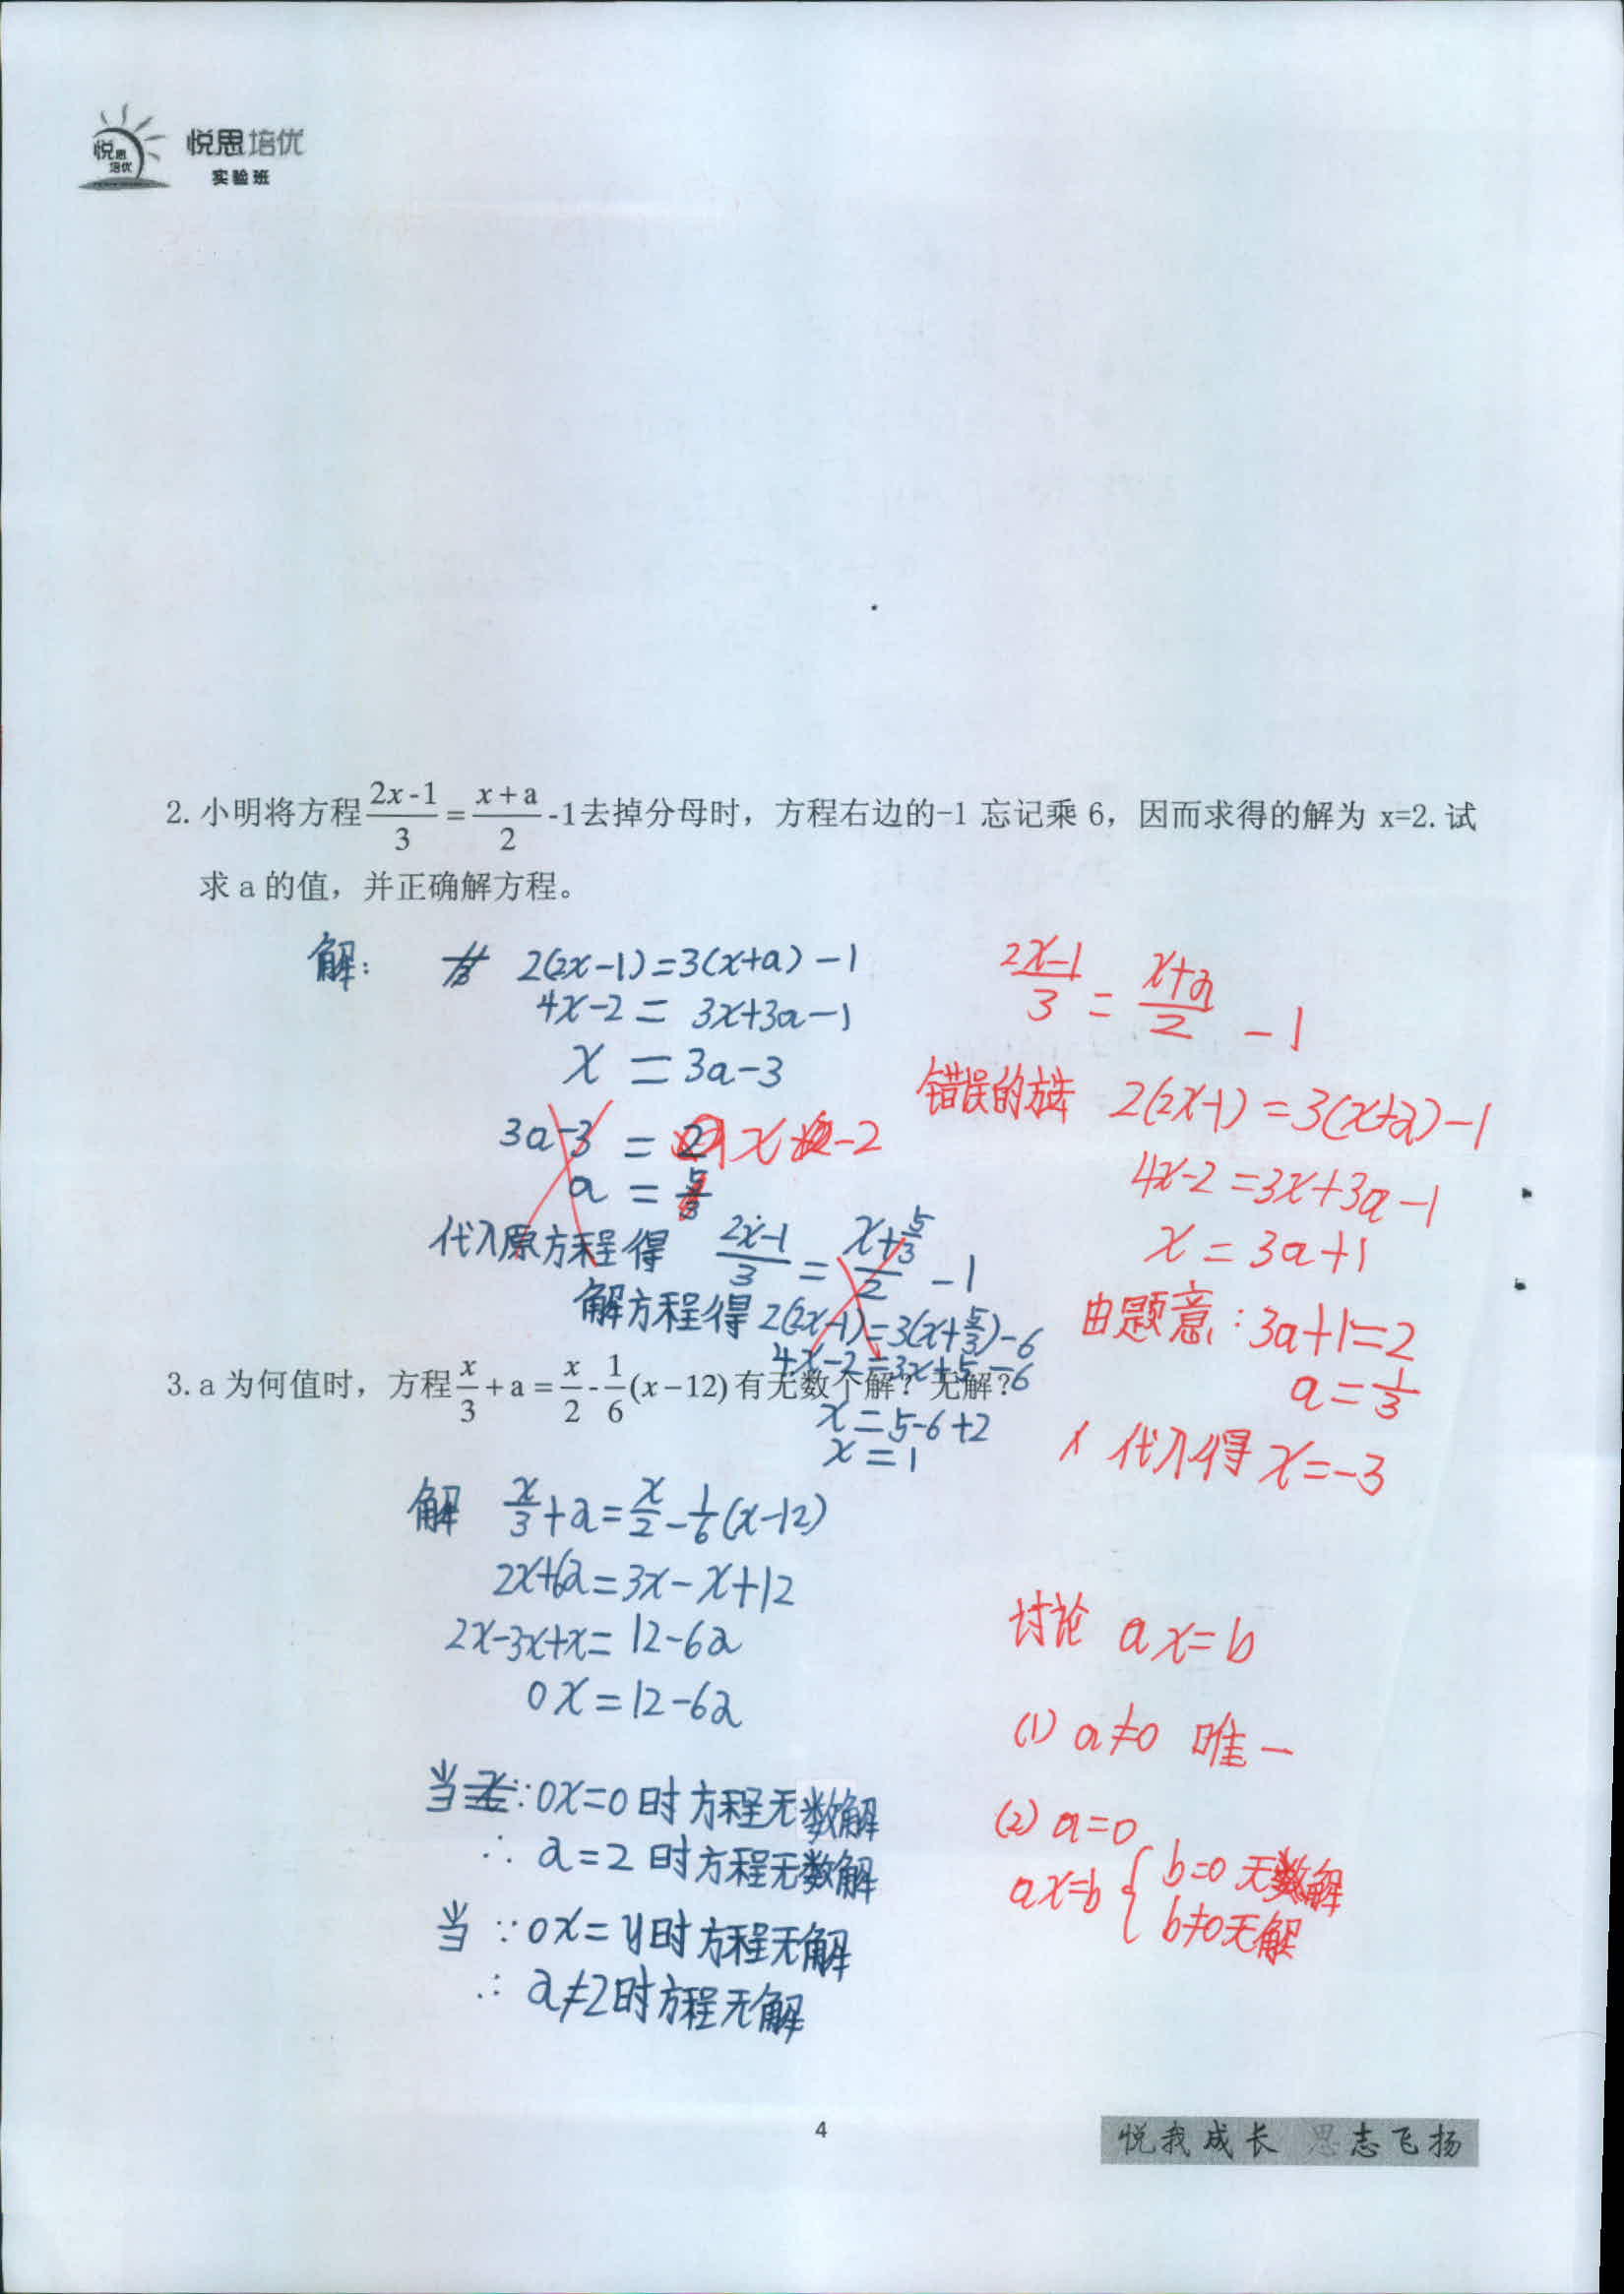 悦思培优
悦思培优
实验班
2. 小明将方程(2x-1)/3=(x+a)/2-1去掉分母时，方程右边的-1 忘记乘 6，因而求得的解为 x=2. 试
求 a 的值，并正确解方程。
解：
2(2x-1)=3(x+a)-1
4x-2= 3x+3a-1
x = 3a-3
3a-3 = 2
a = 5/3
代入原方程得 (2x-1)/3 = (x+5/3)/2 -1
解方程得 2(2x-1)=3(x+5/3)-6
4x-2=3x+5-6
x=5-6+2
x=1
(2x-1)/3 = (x+a)/2 -1
错误的方法 2(2x-1)=3(x+a)-1
4x-2=3x+3a-1
x=3a+1
由题意：3a+1=2
a=1/3
代入得 x=-3
3. a 为何值时，方程x/3+a=x/2-1/6(x-12)有无数个解？无解？
解 x/3+a=x/2-1/6(x-12)
2x+6a=3x-x+12
2x-3x+x=12-6a
0x=12-6a
当∵0x=0时方程无数解
∴ a=2时方程无数解
当 ∵0x=y时方程无解
∴ a≠2时方程无解
讨论 ax=b
(1) a≠0 唯一
(2) a=0
ax=b { b=0 无数解
b≠0无解
4
悦我成长 思志飞扬